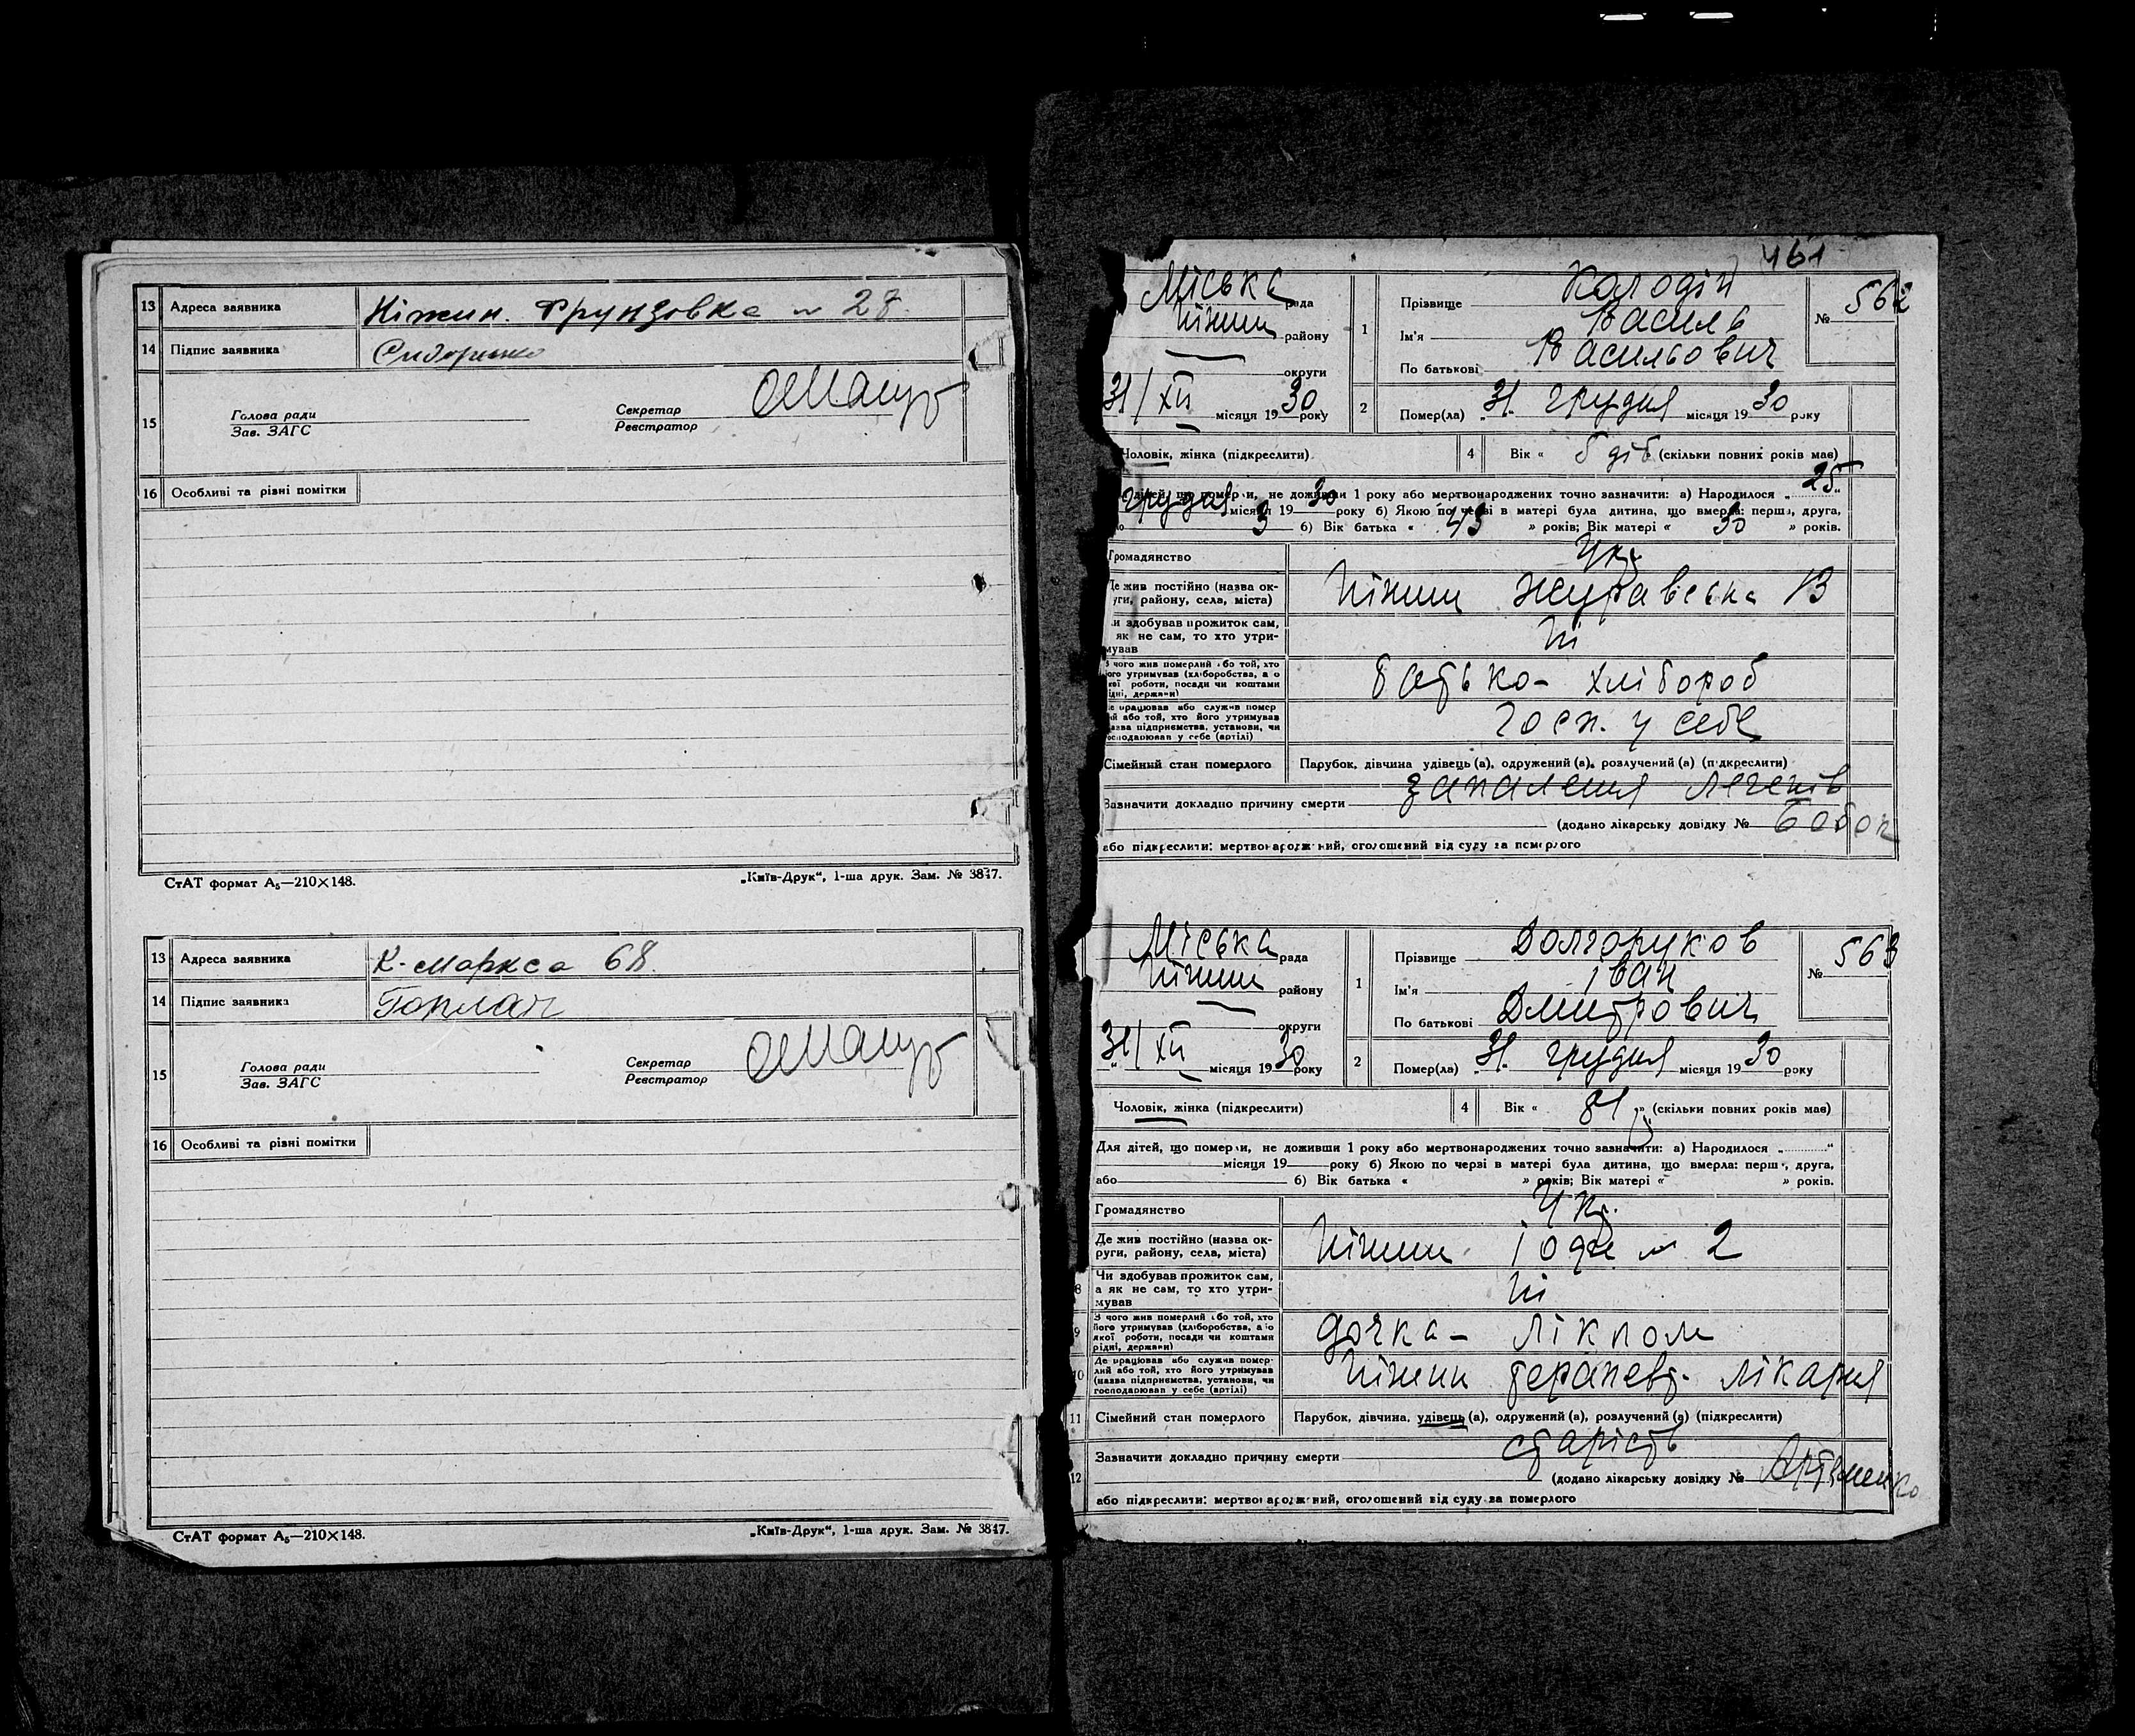 13 Адреса заявника Ніжин. Фрунзовка № 27.
14 Підпис заявника
15 Голова ради Секретар
Зав. ЗАГС Реєстратор
16 Особливі та різні помітки
СтАТ формат А₅—210×148. „Київ-Друк“, 1-ша друк. Зам. № 3847.
13 Адреса заявника К-Маркса 68.
14 Підпис заявника
15 Голова ради Секретар
Зав. ЗАГС Реєстратор
16 Особливі та різні помітки
СтАТ формат А₅—210×148. „Київ-Друк“, 1-ша друк. Зам. № 3847.
461
Міська рада
Ніжин району
округи
31/XII місяця 1930 року
1 Прізвище Колодій
Ім'я Василь
По батькові Васильович
№ 562
2 Помер(ла) „31“ грудня місяця 1930 року
Чоловік, жінка (підкреслити) 4 Вік « 5 діб (скільки повних років має)
дітей, що померли, не доживши 1 року або мертвонароджених точно зазначити: а) Народилося „25“
грудня місяця 1930 року б) Якою по черзі в матері була дитина, що вмерла: перша, друга,
3 б) Вік батька « 43 » років; Вік матері « 30 » років.
Громадянство Укр
Де жив постійно (назва ок-
уги, району, села, міста) Ніжин Журавська 13
и здобував прожиток сам,
як не сам, то хто утри-
мував Ні
З чого жив померлий або той, хто
його утримував (хліборобства, або
якої роботи, посади чи коштами
рідні, держави) батько- хлібороб
Де працював або служив помер-
лий або той, хто його утримував
назва підприємства, установи, чи
господарював у себе (артілі) Госп. у себе
Сімейний стан померлого Парубок, дівчина удівець (а), одружений (а), розлучений (а) (підкреслити)
Зазначити докладно причину смерти запалення легенів
(додано лікарську довідку №
або підкреслити: мертвонароджений, оголошений від суду за померлого
Міська рада
Ніжин району
округи
31/XII місяця 1930 року
1 Прізвище Долгоруков
Ім'я Іван
По батькові Дмитрович
№ 563
2 Помер(ла) „31“ грудня місяця 1930 року
Чоловік, жінка (підкреслити) 4 Вік « 81 » (скільки повних років має)
Для дітей, що померли, не доживши 1 року або мертвонароджених точно зазначити: а) Народилося „ “
місяця 19 року б) Якою по черзі в матері була дитина, що вмерла: перша, друга,
або б) Вік батька « » років; Вік матері « » років.
Громадянство Укр.
Де жив постійно (назва ок-
руги, району, села, міста) Ніжин № 2
8 Чи здобував прожиток сам,
а як не сам, то хто утри-
мував Ні
9 З чого жив померлий або той, хто
його утримував (хліборобства, або
якої роботи, посади чи коштами
рідні, держави) дочка- лікпом
10 Де працював або служив помер-
лий або той, хто його утримував
(назва підприємства, установи, чи
господарював у себе (артілі) Ніжин терапевт. лікарня
11 Сімейний стан померлого Парубок, дівчина, удівець (а), одружений (а), розлучений (а) (підкреслити)
12 Зазначити докладно причину смерти старість
(додано лікарську довідку № Артеменко
або підкреслити: мертвонароджений, оголошений від суду за померлого